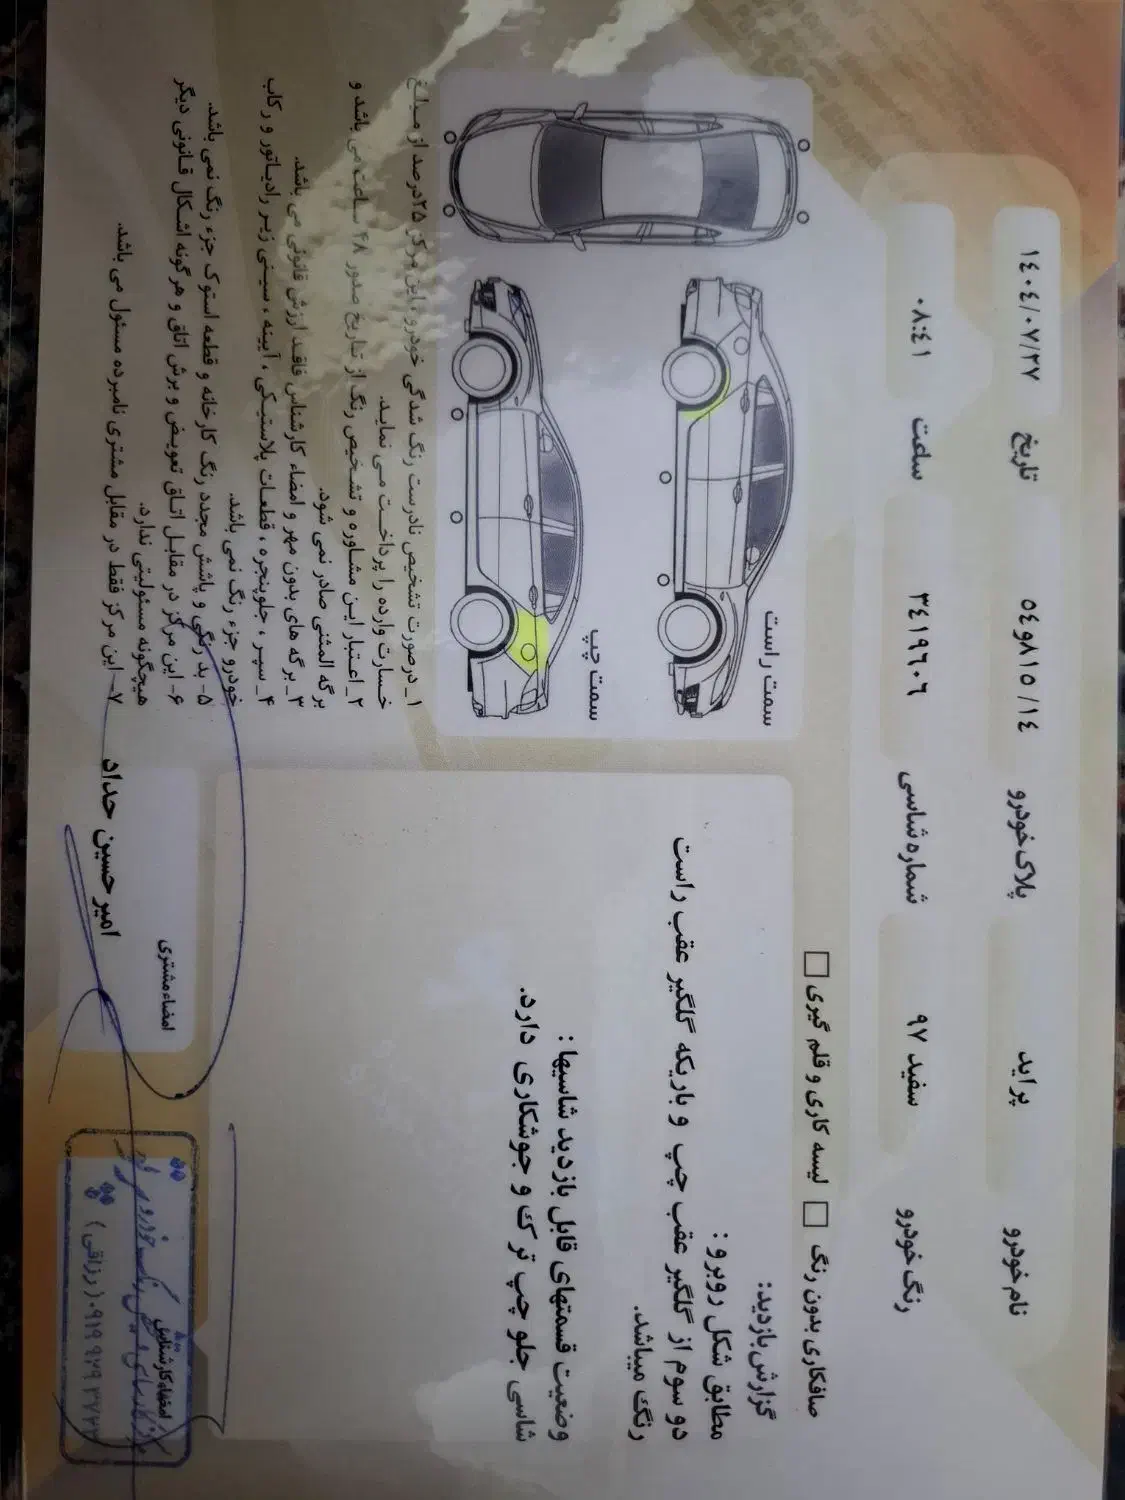 نام خودرو پراید پلاک خودرو ۵۴و۸۱۵/۱۴ تاریخ ۱۴۰۴/۰۷/۲۷
رنگ خودرو سفید ۹۷ شماره شاسی ۳۴۱۹۶۰۶ ساعت ۰۸:۴۱
صافکاری بدون رنگ لیسه کاری و قلم گیری
گزارش بازدید:
مطابق شکل روبرو :
دو سوم از گلگیر عقب چپ و باریکه گلگیر عقب راست
رنگ میباشد.
وضعیت قسمتهای قابل بازدید شاسیها :
شاسی جلو چپ ترک و جوشکاری دارد.
سمت راست
سمت چپ
۱_ درصورت تشخیص نادرست رنگ شدگی خودرو، این مرکز ۲۵درصد از مبلغ
خسارت وارده را پرداخت می نماید.
۲_اعتبار این مشاوره و تشخیص رنگ از تاریخ صدور ۴۸ ساعت می باشد و
برگه المثنی صادر نمی شود.
۳_ برگه های بدون مهر و امضاء کارشناس فاقد ارزش قانونی می باشد.
۴_ سپر ، جلوپنجره ، قطعات پلاستیکی ، آیینه ، سینی زیر رادیاتور و رکاب
خودرو جزء رنگ نمی باشد.
۵- بد رنگی و پاشش مجدد رنگ کارخانه و قطعه استوک جزء رنگ نمی باشد.
۶- این مرکز در مقابل اتاق تعویض و برش اتاق و هرگونه اشکال قانونی دیگر
هیچگونه مسئولیتی ندارد.
۷- این مرکز فقط در مقابل مشتری نامبرده مسئول می باشد.
امضاء مشتری
امیر حسین حداد
امضاء کارشناس
(رزاقی)